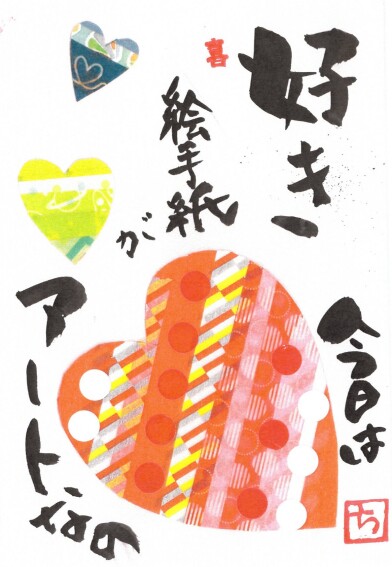 好き、
今日は
絵手紙
が
アート、なの
喜
ち